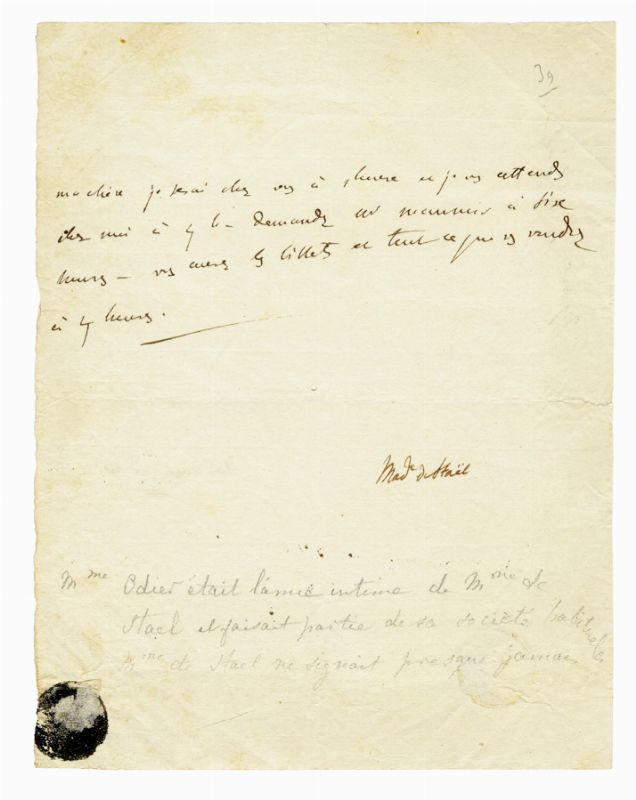 39
ma chère je serai chez vs à heure et je vs attends
chez moi à 4 h – demandez à six
heures – vs aurez les billets et tout ce que vs voudrez
à 4 heures.
Made de Staël
Mme Odier était l'amie intime de Mme de
Stael et faisait partie de sa société habituelle
Mme de Stael ne signait presque jamais